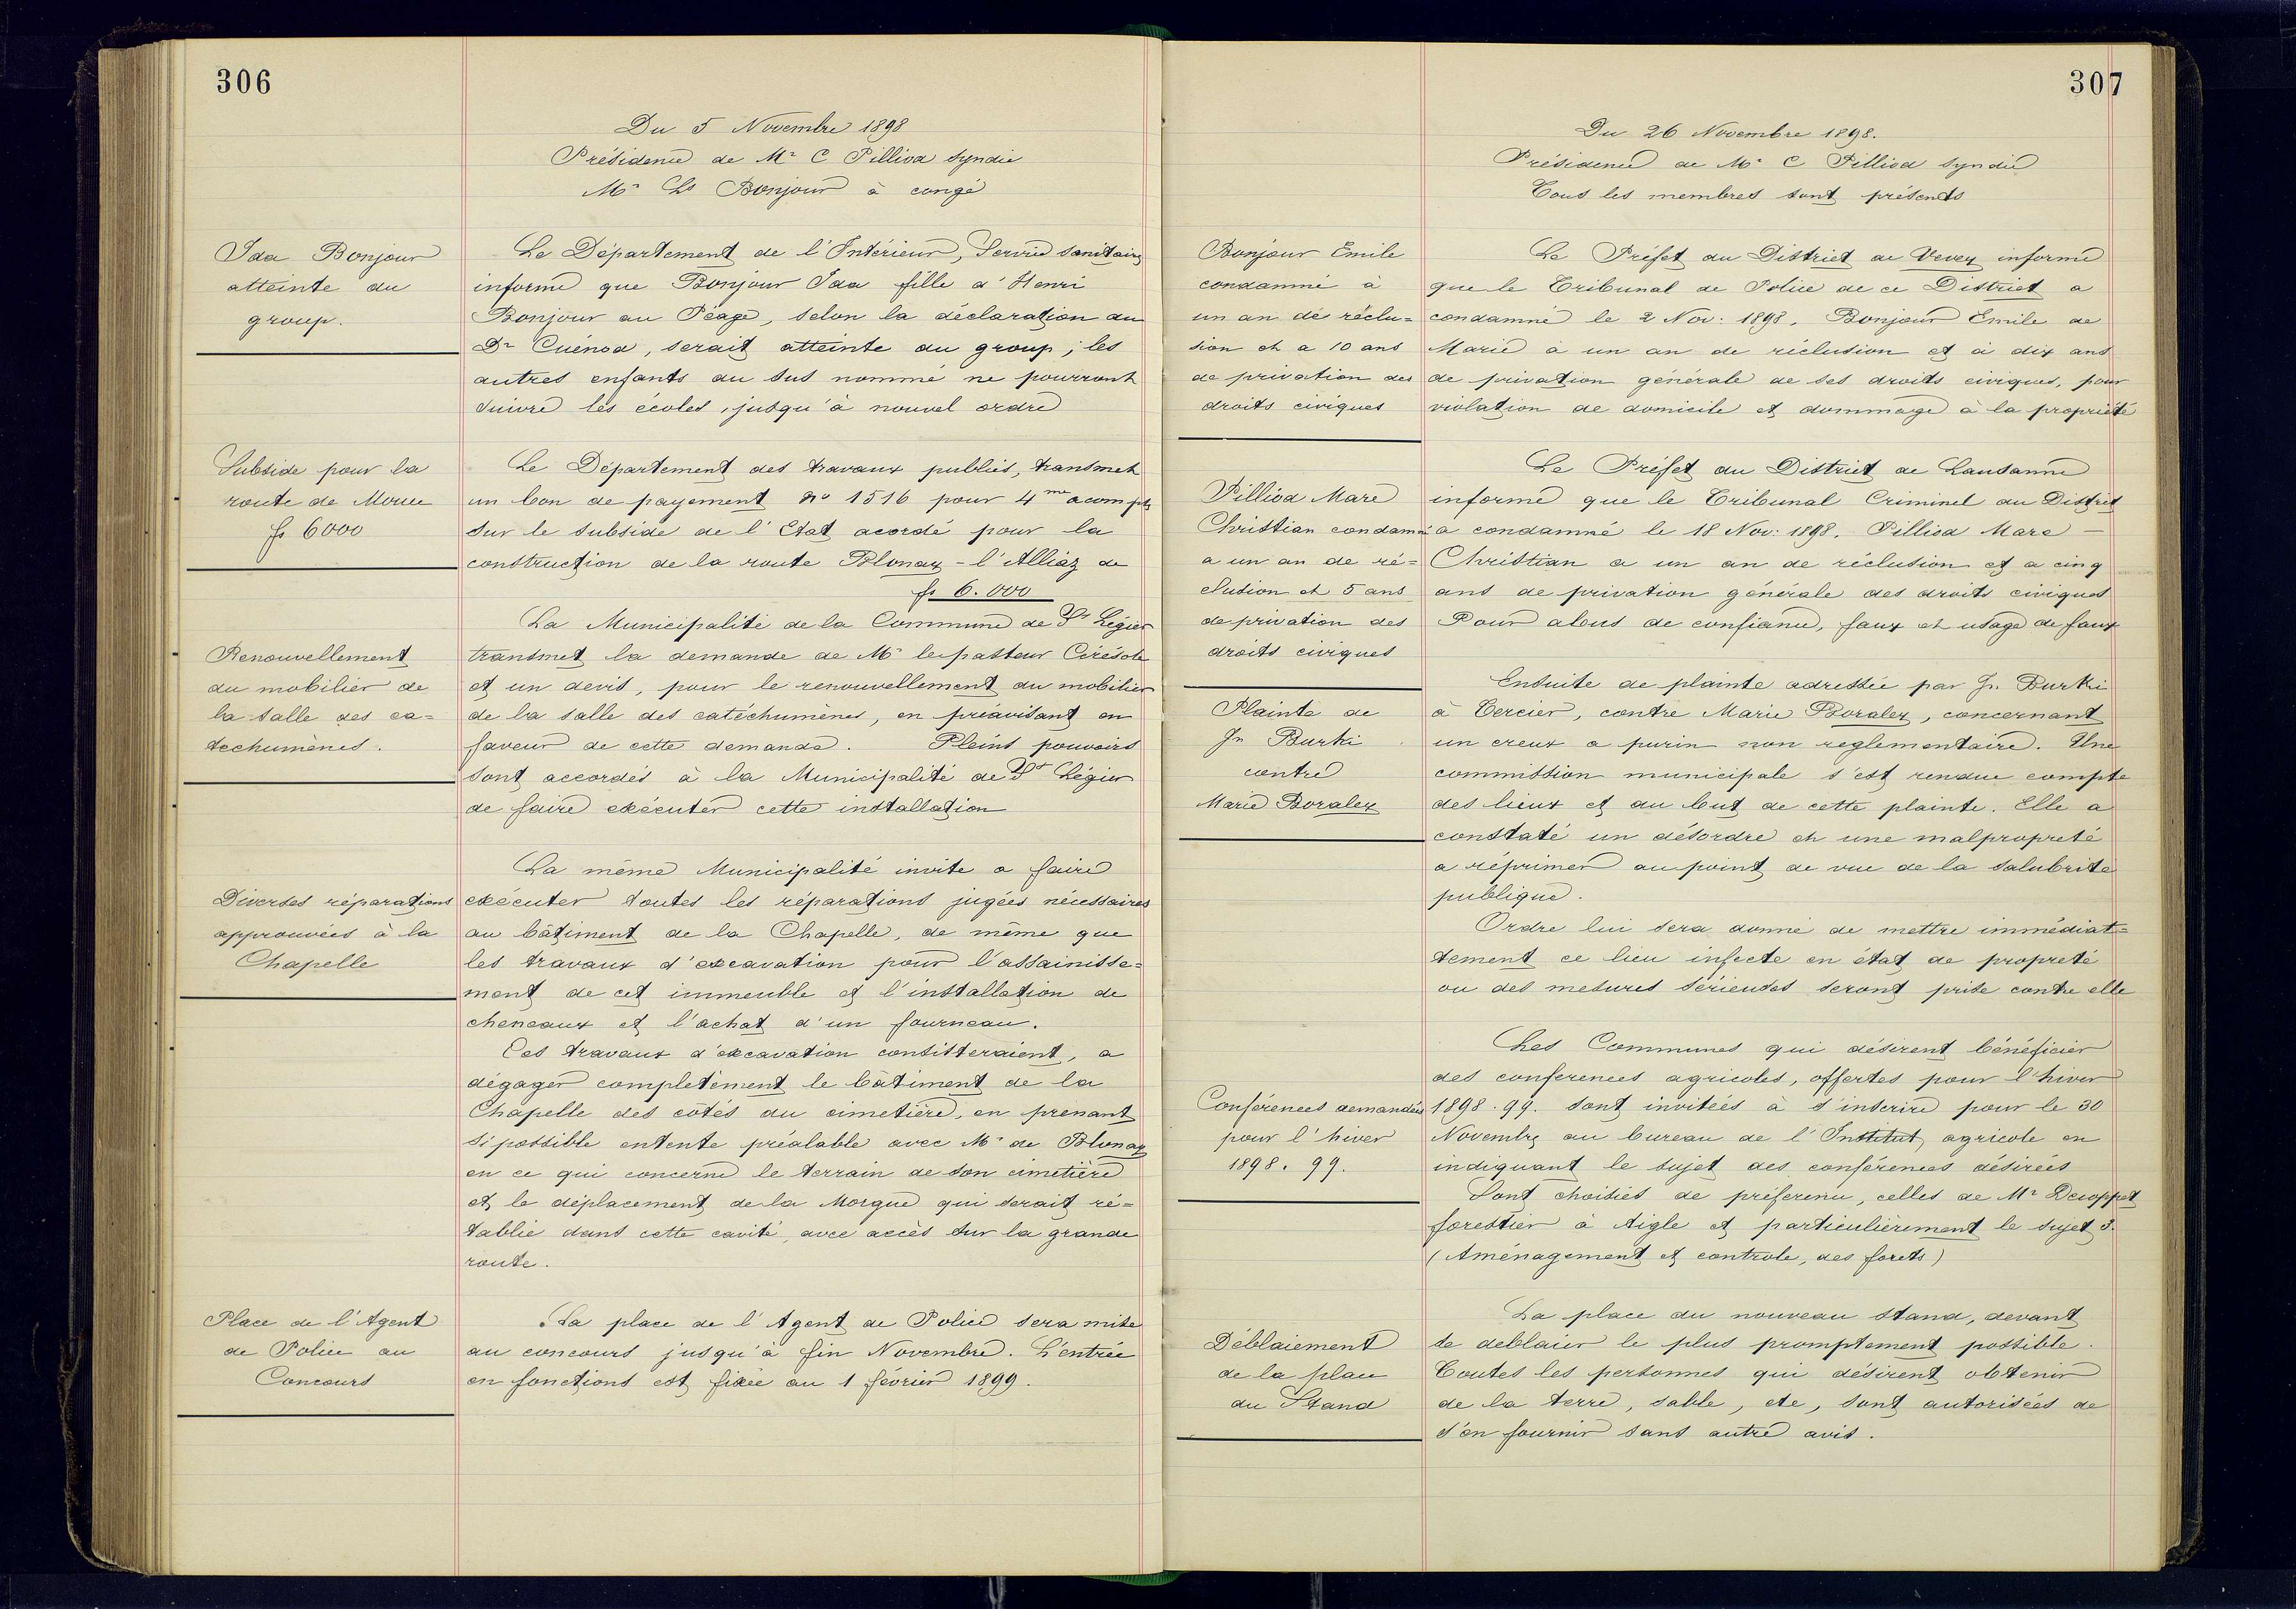 306
Du 5 Novembre 1898
Présidence de Mr C Pilliod Syndic
Mr Ls Bonjour à congé
Ida Bonjour
atteinte du
group.
Le Département de l'Intérieur, Service sanitaire
informe que Bonjour Ida fille d'Henri
Bonjour au Péage, selon la déclaration du
Dr Cuénod, serait atteinte du group ; les
autres enfants du sus nommé ne pourront
suivre les écoles, jusqu'à nouvel ordre
Subside pour la
route de Mouce
fs 6000
Le Département des travaux publics, transmet
un bon de payement no 1516 pour 4me acompte
sur le subside de l'Etat acordé pour la
construction de la route Blonay - l'Alliaz de
fs 6.000
Renouvellement
du mobilier de
la salle des ca=
techumènes.
La Municipalité de la Commune de St Légier
transmet la demande de Mr le pasteur Cérésole
et un devis, pour le renouvellement du mobilier
de la salle des catéchumènes, en préavisant en
faveur de cette demande. Pleins pouvoirs
sont accordés à la Municipalité de St Légier
de faire exécuter cette installation
Diverses réparations
approuvées à la
Chapelle
La même Municipalité invite a faire
exécuter toutes les réparations jugées nécessaires
au bâtiment de la Chapelle, de même que
les travaux d'excavation pour l'assainisse=
ment de cet immeuble et l'installation de
cheneaux et l'achat d'un fourneau.
Ces travaux d'excavation consisteraient, a
dégager complètement le bâtiment de la
Chapelle des côtés du cimetière, en prenant
si possible entente préalable avec Mr de Blonay
en ce qui concerne le terrain de son cimetière
et le déplacement de la Morgue qui serait ré=
tablie dans cette cavité, avec accès sur la grande
route.
Place de l'Agent
de Police au
Concours
La place de l'Agent de Police sera mise
au concours jusqu'à fin Novembre. L'entrée
en fonctions est fixée au 1 février 1899.
307
Du 26 Novembre 1898.
Présidence de Mr C Pilliod Syndic
Tous les membres sont présents
Bonjour Emile
condamné à
un an de réclu=
sion et a 10 ans
de privation des
droits civiques
Le Préfet du District de Vevey informe
que le Tribunal de Police de ce District a
condamné le 2 Nov: 1898, Bonjour Emile de
Marie à un an de réclusion et à dix ans
de privation générale de ses droits civiques, pour
violation de domicile et dommage à la propriété
Pilliod Marc
Christian condamné
a un an de ré=
clusion et 5 ans
de privation des
droits civiques
Le Préfet du District de Lausanne
informe que le Tribunal Criminel du District
a condamné le 18 Nov: 1898. Pilliod Marc -
Christian a un an de réclusion et a cinq
ans de privation générale des droits civiques
Pour abus de confiance, faux et usage de faux
Plainte de
Jn Burki
contre
Marie Boraley
Ensuite de plainte adressée par Jn Burki
à Tercier, contre Marie Boraley, concernant
un creux a purin non reglementaire. Une
commission municipale s'est rendue compte
des lieux et du but de cette plainte. Elle a
constaté un désordre et une malpropreté
a réprimer au point de vue de la salubrité
publique.
Ordre lui sera donné de mettre immédiat=
tement ce lieu infecte en état de propreté
ou des mesures sérieuses seront prise contre elle
Conférences demandées
pour l'hiver
1898. 99.
Les Communes qui désirent bénéficier
des conferences agricoles, offertes pour l'hiver
1898. 99. sont invitées à s'inscrire pour le 30
Novembre au bureau de l'Institut agricole en
indiquant le sujet des conférences désirées
Sont choisies de préference, celles de Mr Decoppet
forestier à Aigle et particulièrement le sujet 3.
(Aménagement et controle, des forets)
Déblaiement
de la place
du Stand
La place du nouveau stand, devant
se deblaier le plus promptement possible.
Toutes les personnes qui désirent obtenir
de la terre, sable, etc, sont autorisées de
s'en fournir sans autre avis.